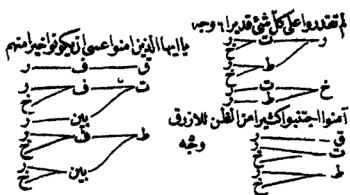 لم تقدروا على كل شئ قديرا ٦ وجه
ر ت ر
خ
ط ر
خ ط ت ر
خ
آمنوا اجتنبوا كثيرا من الظن للازرق
وجه
ق ر
ت ر
خ
ط ر
خ
يا ايها الذين امنوا عسى ان يكونوا خيرا منهم
ق ف ر
ت ف ر
خ
بين ر
ط ف ر
خ
بين ر
خ